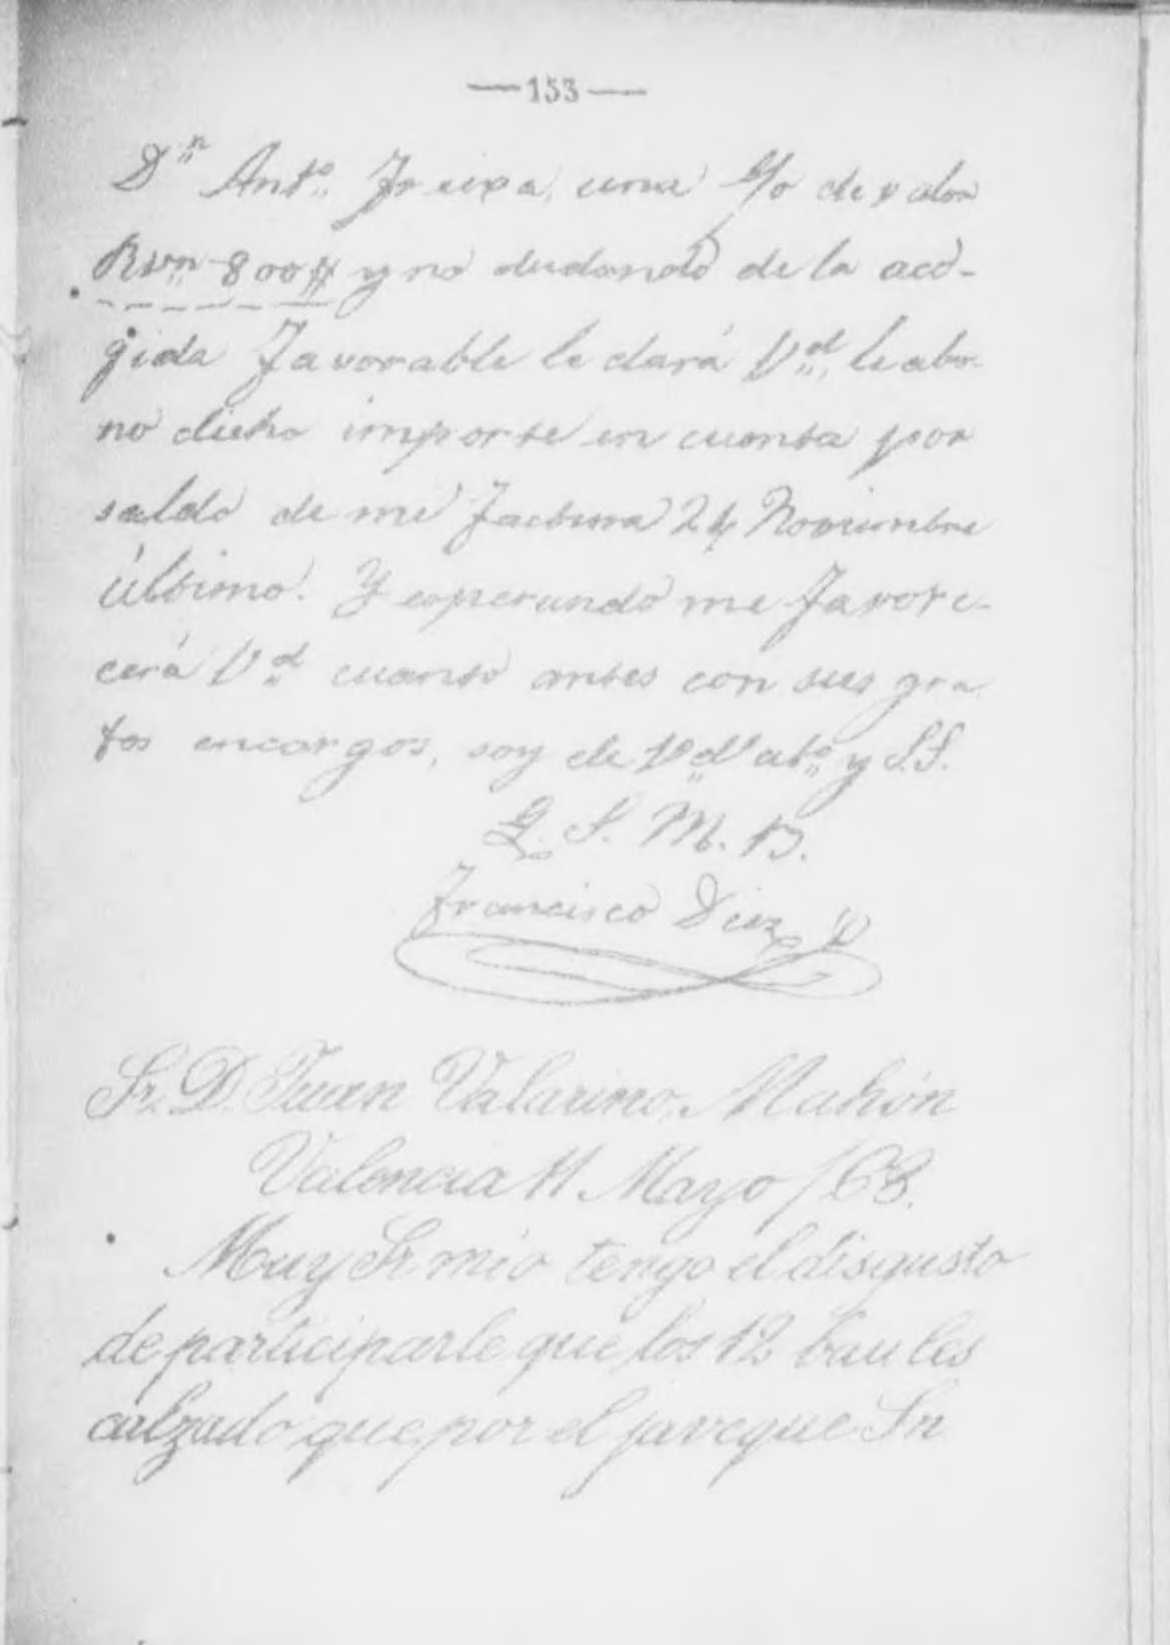 —153—
Dⁿ Antº Freixa, una L/o de valor
Rvⁿ 800 # y no dudando de la aco-
gida favorable le dará Vd, le abo-
no dicho importe en cuenta por
saldo de mi factura 24 Noviembre
último. Y esperando me favore-
cerá Vd cuanto antes con sus gra-
tos encargos, soy de Vd atº y S.S.
Q. S. M. B.
Francisco Diez
Sr. D. Juan Valarino. Mahón
Valencia 11 Mayo /68.
Muy Sr mio tengo el disgusto
de participarle que los 12 baules
calzado que por el javeque Sn